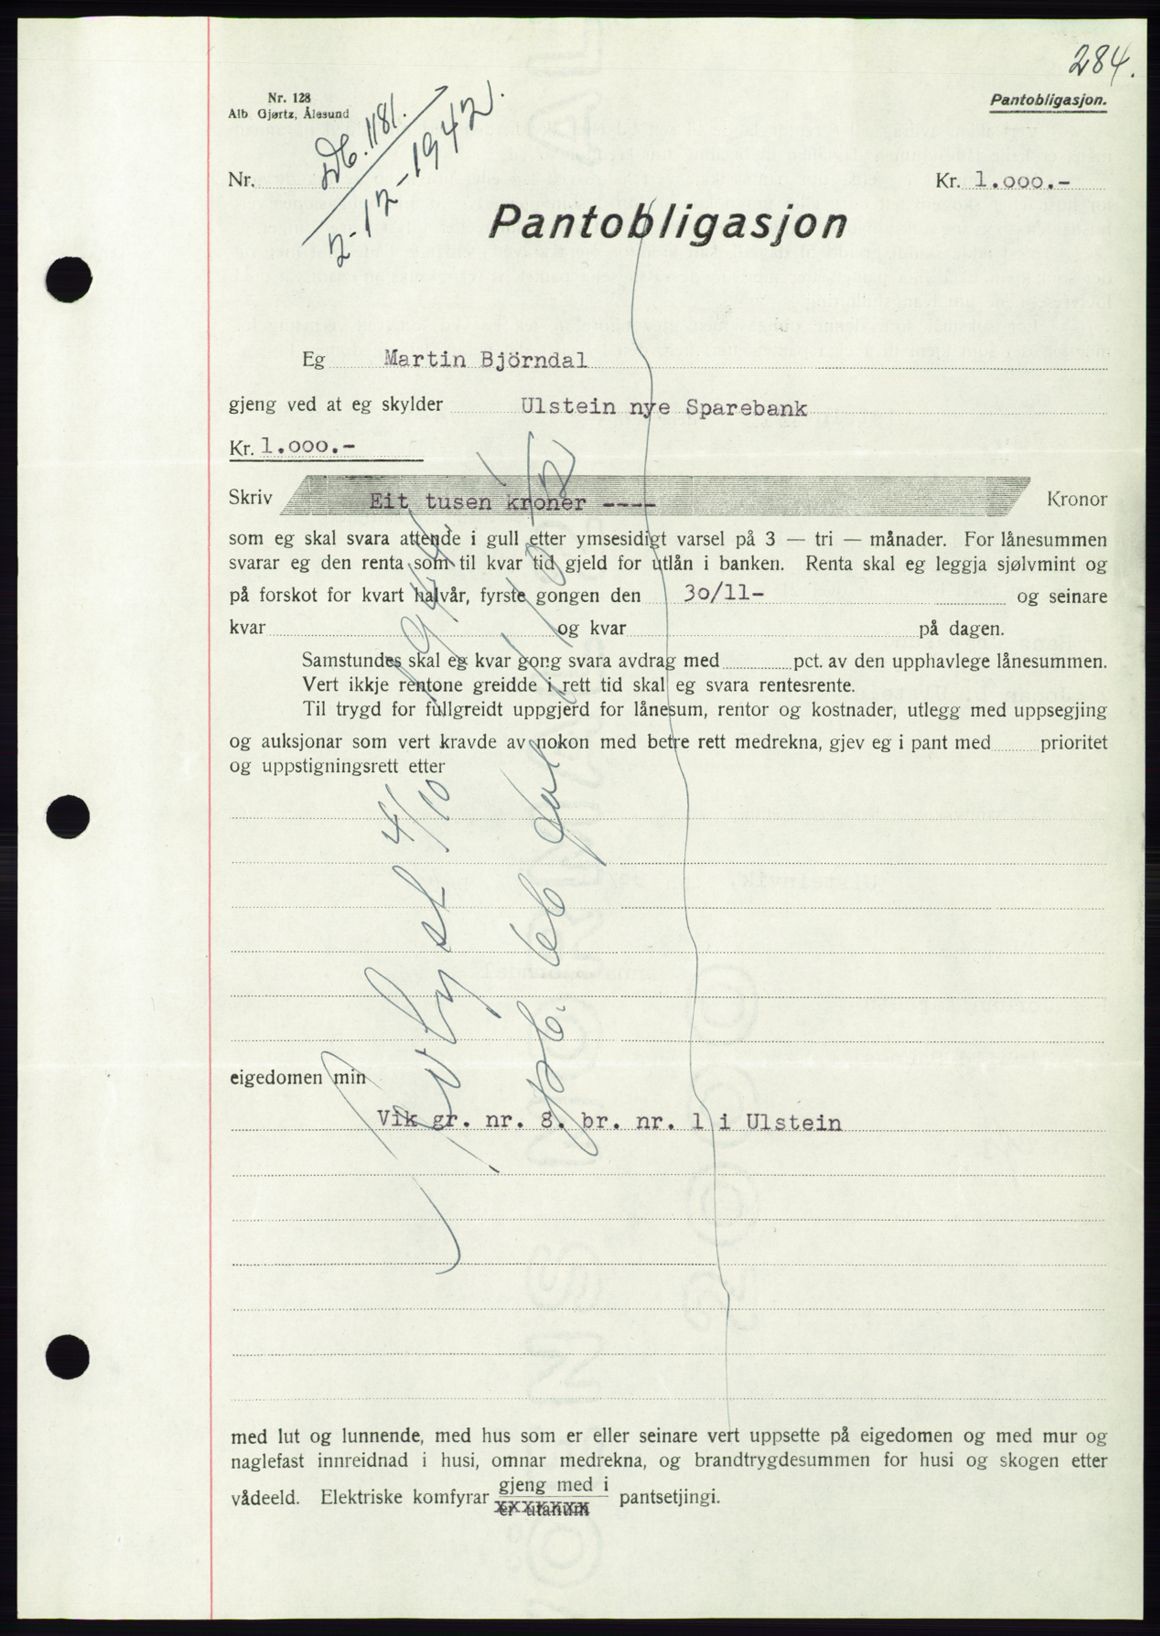 284.
Nr. 128
Alb Gjørtz, Ålesund
Pantobligasjon.
Db. 1181.
2-12-1942.
Nr.
Kr. 1.000.-
Pantobligasjon
Eg Martin Björndal
gjeng ved at eg skylder Ulstein nye Sparebank
Kr. 1.000.-
Skriv Eit tusen kroner ---- Kronor
som eg skal svara attende i gull etter ymsesidigt varsel på 3 — tri — månader. For lånesummen
svarar eg den renta som til kvar tid gjeld for utlån i banken. Renta skal eg leggja sjølvmint og
på forskot for kvart halvår, fyrste gongen den 30/11- og seinare
kvar og kvar på dagen.
Samstundes skal eg kvar gong svara avdrag med pct. av den upphavlege lånesummen.
Vert ikkje rentone greidde i rett tid skal eg svara rentesrente.
Til trygd for fullgreidt uppgjerd for lånesum, rentor og kostnader, utlegg med uppsegjing
og auksjonar som vert kravde av nokon med betre rett medrekna, gjev eg i pant med prioritet
og uppstigningsrett etter
Avlyst 4/10 1944
eigedomen min
Vik gr. nr. 8. br. nr. 1 i Ulstein
med lut og lunnende, med hus som er eller seinare vert uppsette på eigedomen og med mur og
naglefast innreidnad i husi, omnar medrekna, og brandtrygdesummen for husi og skogen etter
vådeeld. Elektriske komfyrar gjeng med i pantsetjingi.
er utanum